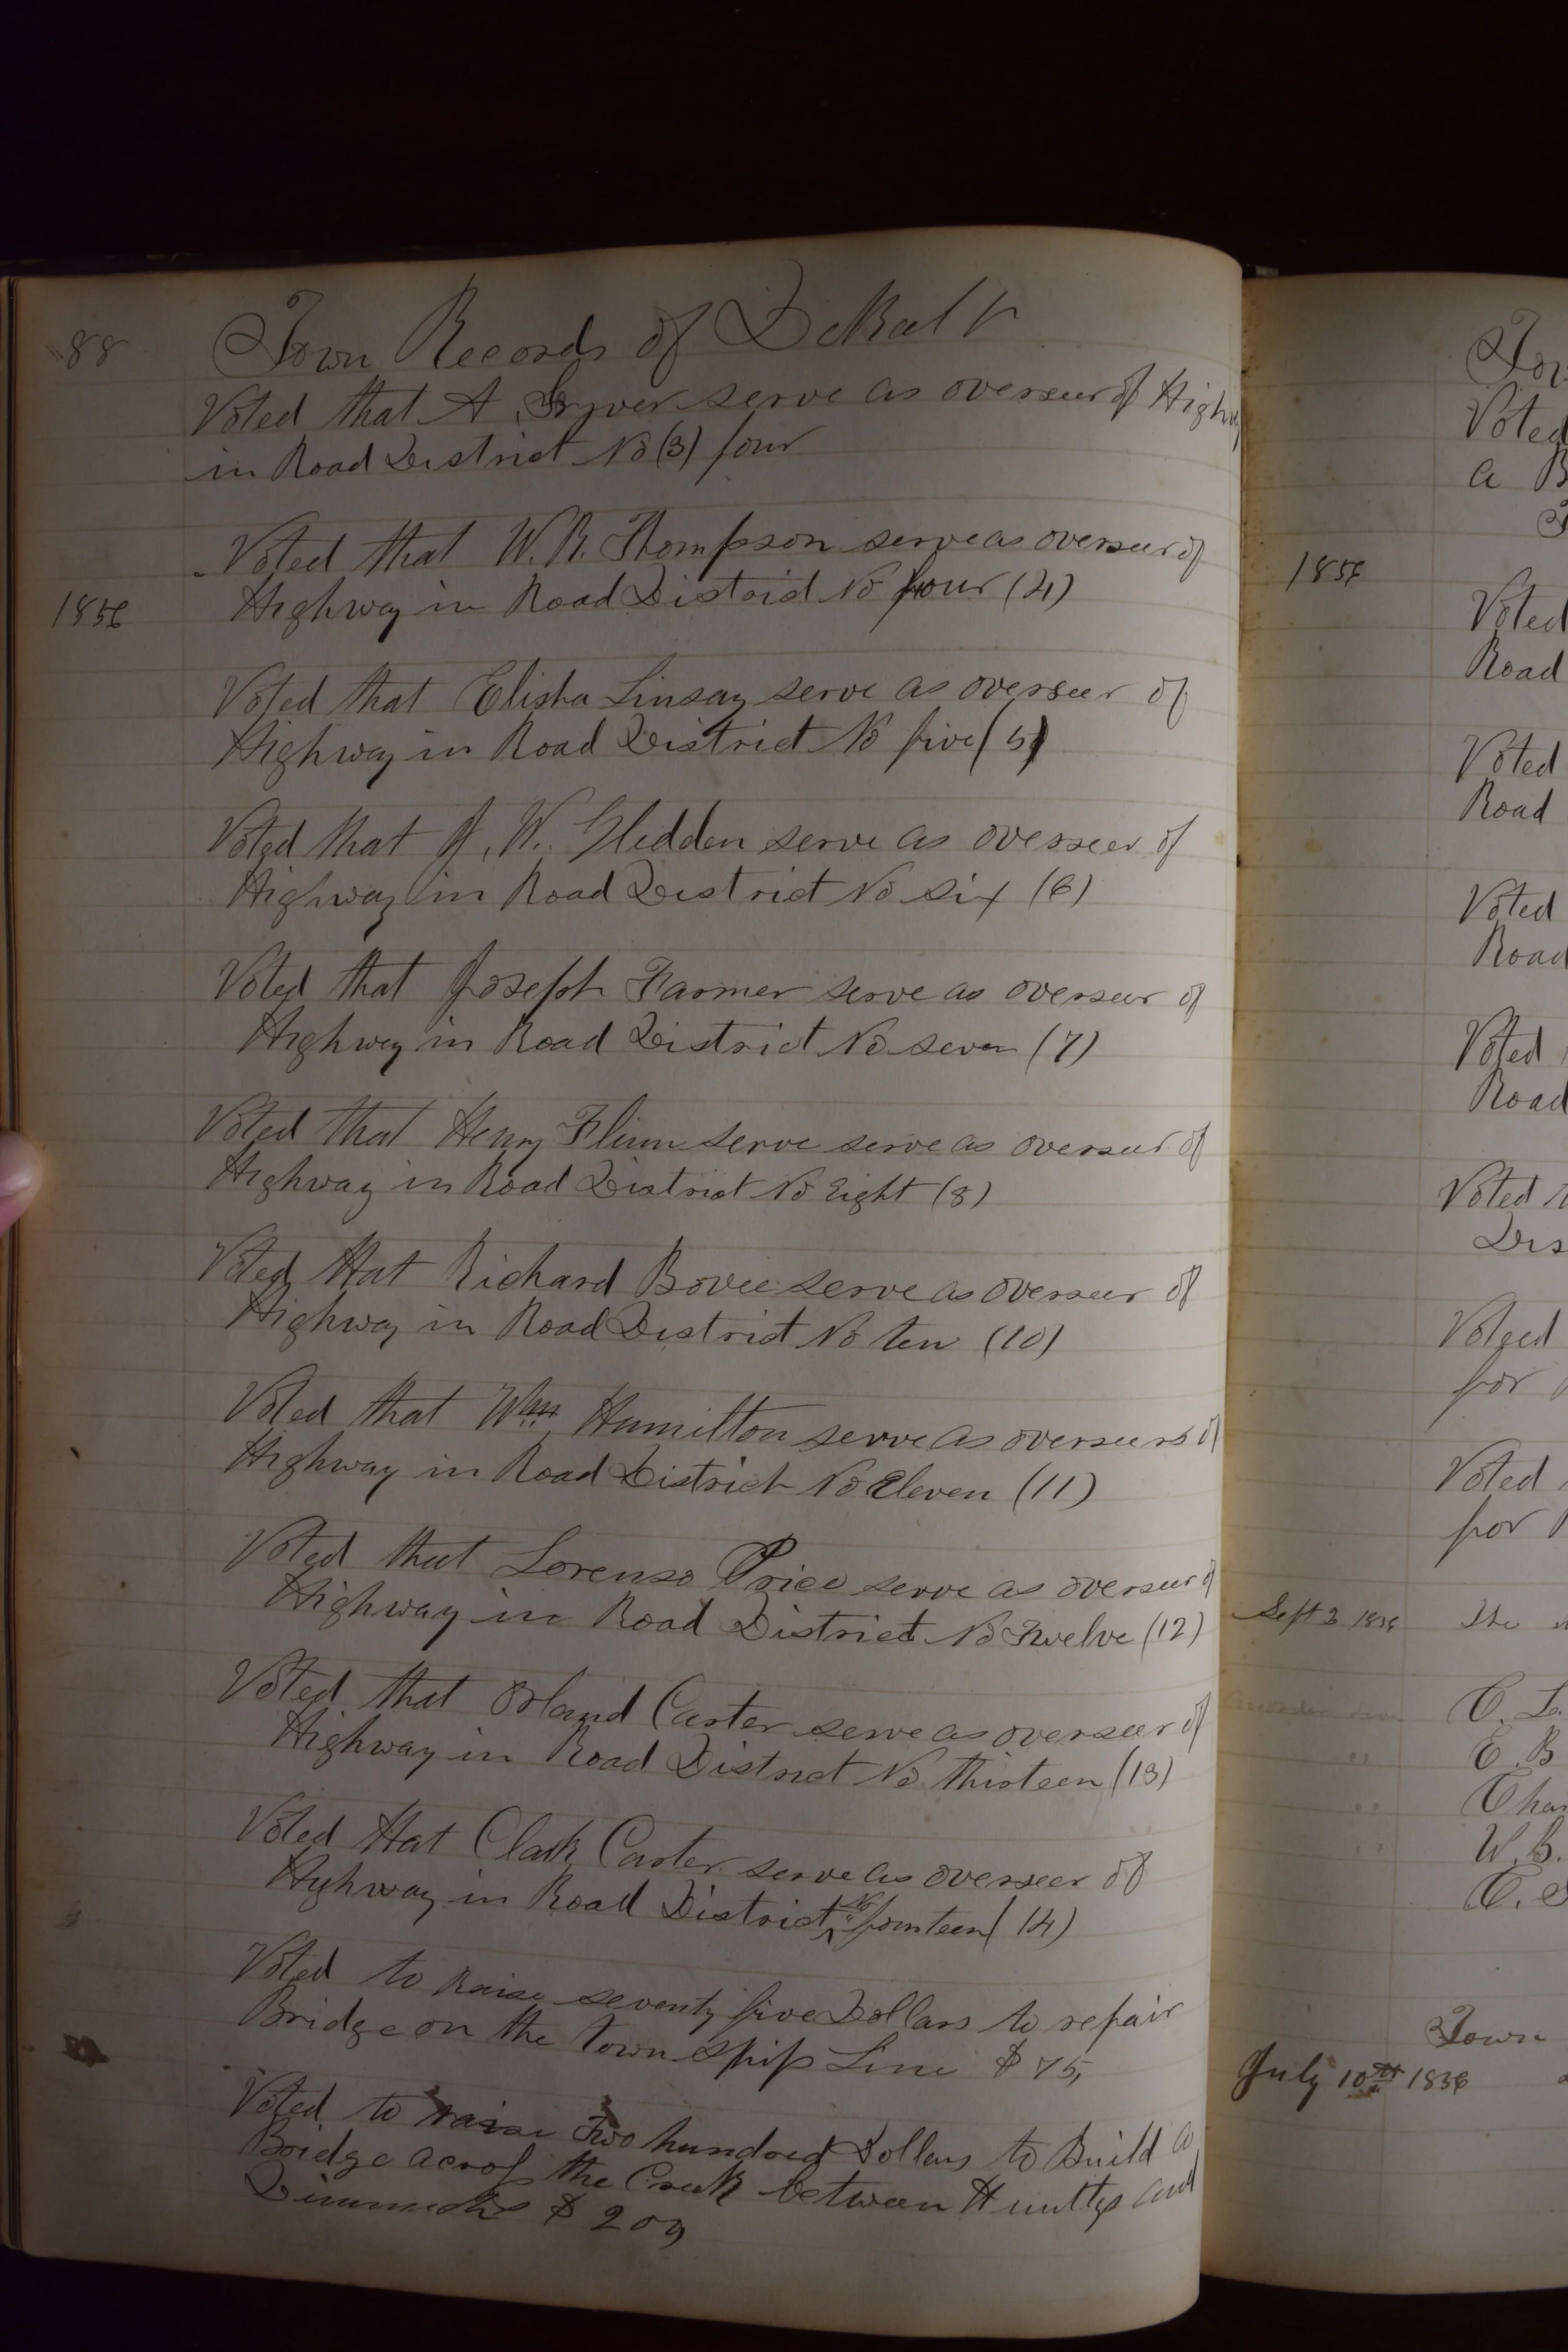 88
Town Records of DeKalb
Voted that A serve as overseer of Highw
in Road District No (3) four
Voted that W. R. Thompson serve as overseer of
1856
Highway in Road District No four (4)
Voted that Elisha Linsay serve as overseer of
Highway in Road District No five (5)
Voted that J. W. Glidden serve as overseer of
Highway in Road District No six (6)
Voted that Joseph Farmer serve as overseer of
Highway in Road District No seven (7)
Voted that Henry Flinn serve serve as overseer of
Highway in Road District No Eight (8)
Voted that Richard Bovee serve as overseer of
Highway in Road District No ten (10)
Voted that Wm Hamilton serve as overseers of
Highway in Road District No Eleven (11)
Voted that Lorenzo Price serve as overseer of
Highway in Road District No Twelve (12)
Voted that Orland Carter serve as overseer of
Highway in Road District No thirteen (13)
Voted that Clark Carter serve as overseer of
Highway in Road District No fourteen (14)
Voted to Raise seventy five Dollars to repair
Bridge on the town ship Line $ 75,
Voted to raise Two hundred Dollars to Build a
Bridge across the Creek between and
$ 200
Tow
Voted
a B
1856
Voted
Road
Voted
Road
Voted
Road
Voted
Road
Voted
Dis
Voted
for
Voted
for
Sept 3 1856 The
C. L.
" E. B
" Char
" W. B.
C. S
Town
July 10th 1856